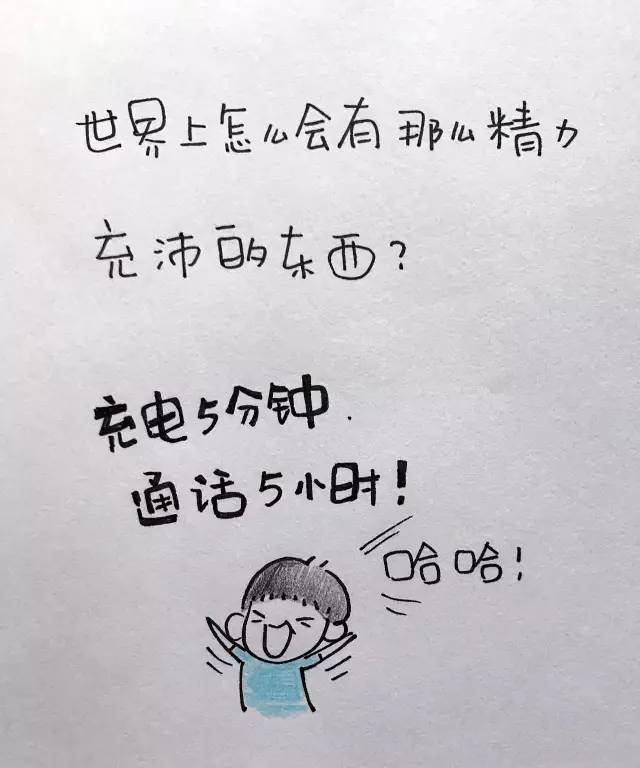 世界上怎么会有那么精力
充沛的东西?
充电5分钟.
通话5小时!
哈哈!